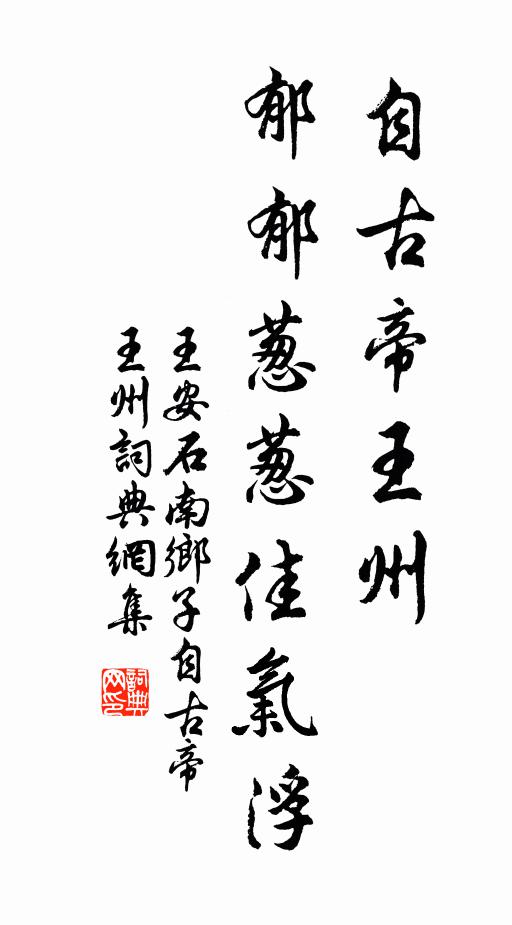 自古帝王州
郁郁蔥蔥佳氣浮
王安石南鄉子自古帝
王州詞典網集
詞典
网印